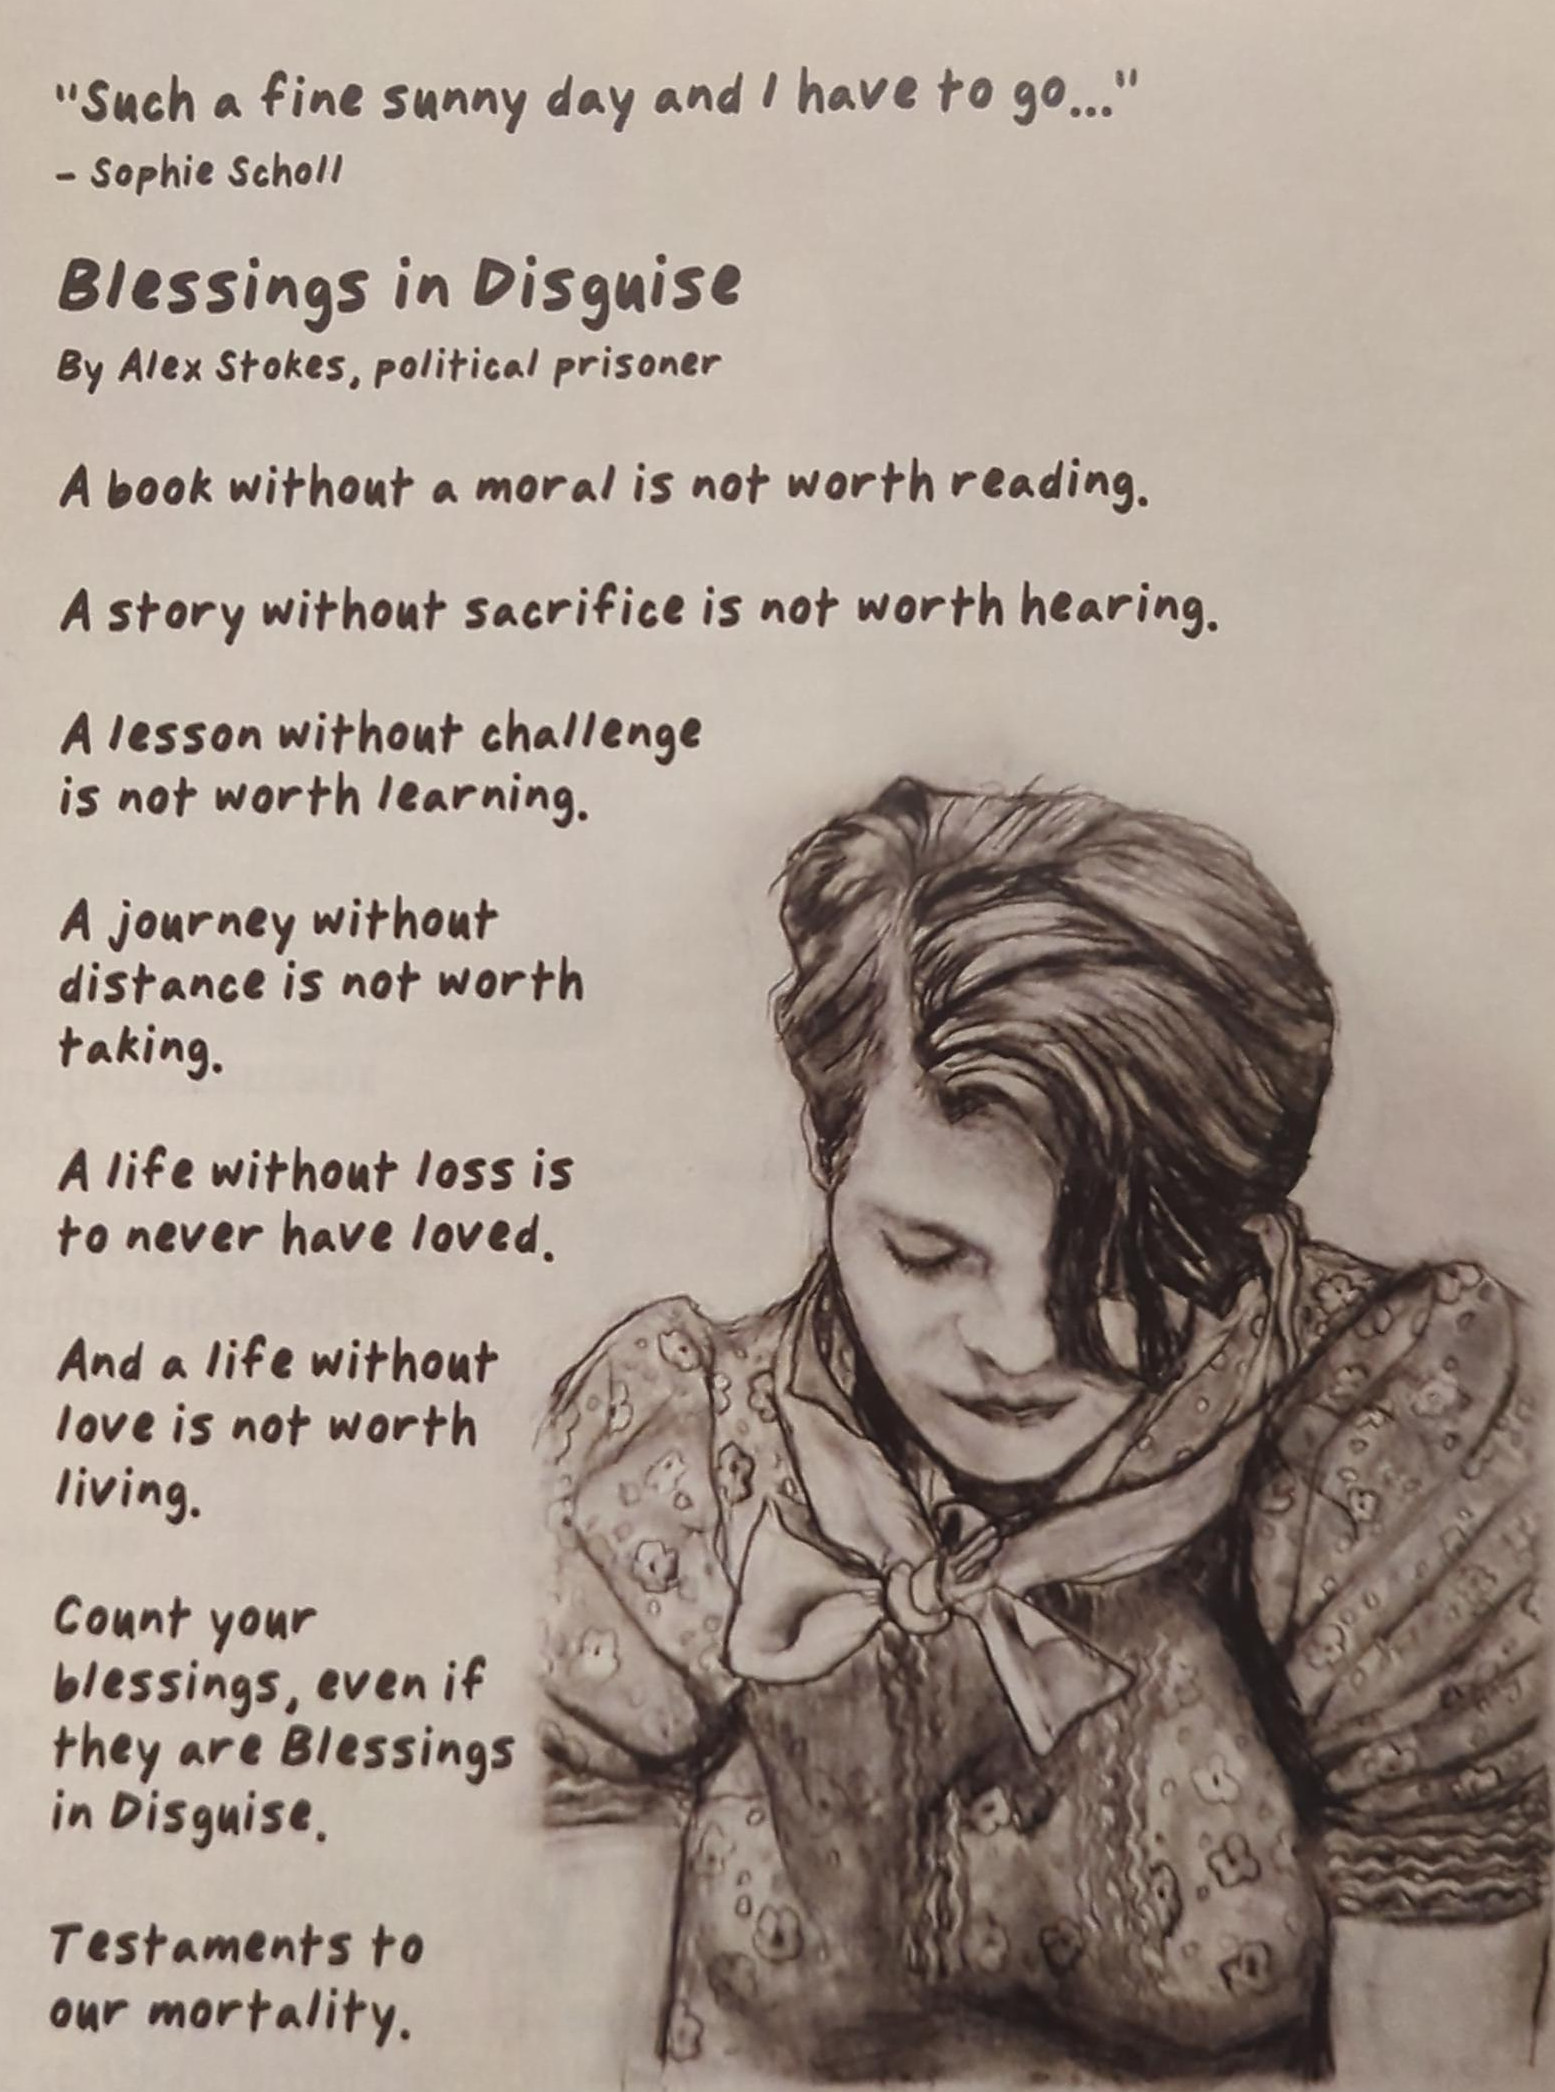 "Such a fine sunny day and I have to go..."
- Sophie Scholl
Blessings in Disguise
By Alex Stokes, political prisoner
A book without a moral is not worth reading.
A story without sacrifice is not worth hearing.
A lesson without challenge
is not worth learning.
A journey without
distance is not worth
taking.
A life without loss is
to never have loved.
And a life without
love is not worth
living.
Count your
blessings, even if
they are Blessings
in Disguise.
Testaments to
our mortality.